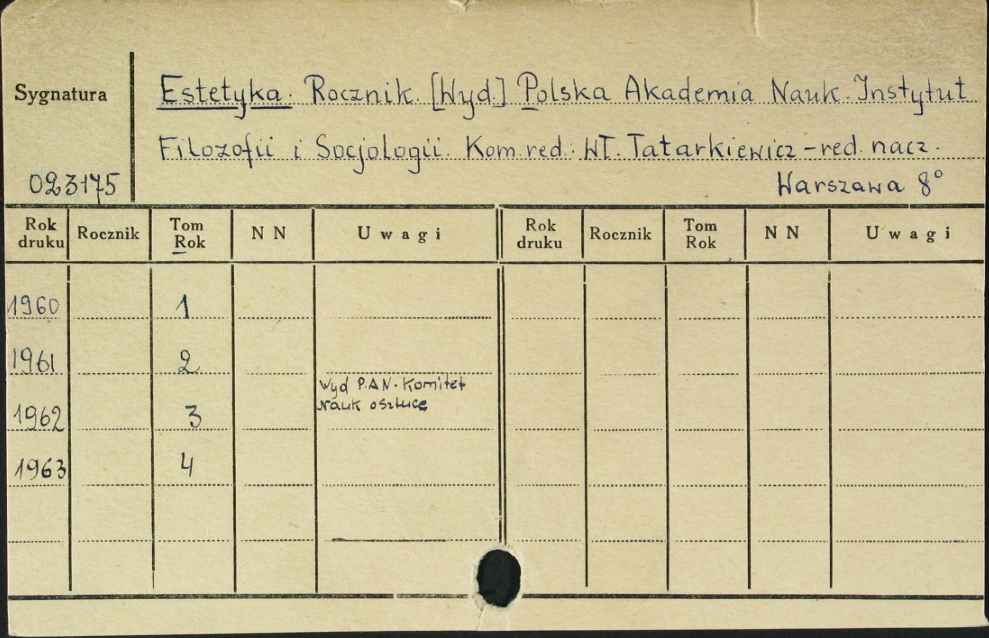 Sygnatura
Estetyka. Rocznik. [Wyd.] Polska Akademia Nauk. Instytut
Filozofii i Socjologii. Kom. red.: Wł. Tatarkiewicz – red. nacz.
023175
Warszawa 8°
Rok druku Rocznik Tom Rok NN Uwagi Rok druku Rocznik Tom Rok NN Uwagi
1960 1
1961 2
Wyd P.A.N. Komitet
Nauk o sztuce
1962 3
1963 4